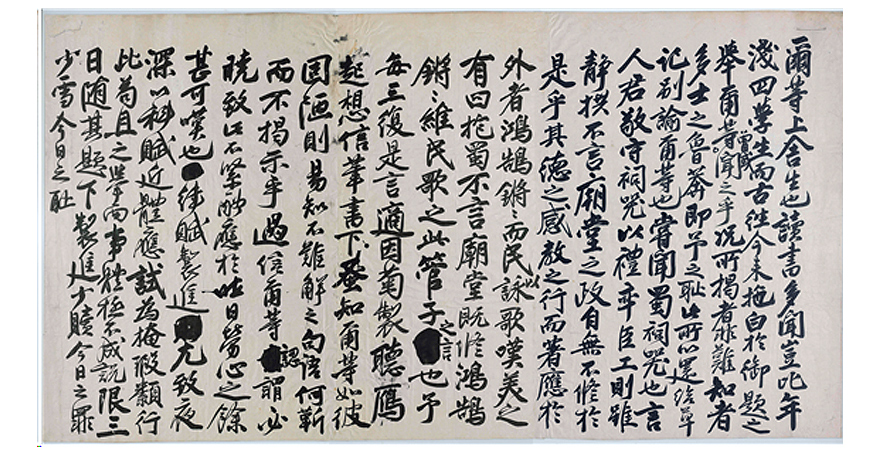 爾等上舍生也讀書多聞豈比年
淺四學生而古往今來拖白於御題之
擧爾等曾或聞之乎況所揭者非難知者
多士之魯莽卽予之恥此所以還給草
記別諭爾等也嘗聞蜀祠器也言
人君敬守祠器以禮率臣工則雖
靜拱不言廟堂之政自無不修於
是乎其德之感敎之行而著應於
外者鴻鵠鏘〻而民以詠歌嘆美之
有曰抱蜀不言廟堂旣修鴻鵠
鏘〻維民歌之此管子之言也予
每三復是言適因菊製聽鴈
起想信筆書下蚤知爾等如彼
固陋則易知不難解之句語何靳
而不揭示乎過信爾等認謂必
曉致此不緊酬應於吐日勞心之餘
甚可嘆也律賦製進尤致夜
深以科賦近體應試爲掩瑕纇行
此苟且之擧而事體極不成說限三
日隨其題下製進少贖今日之罪
少雪今日之恥